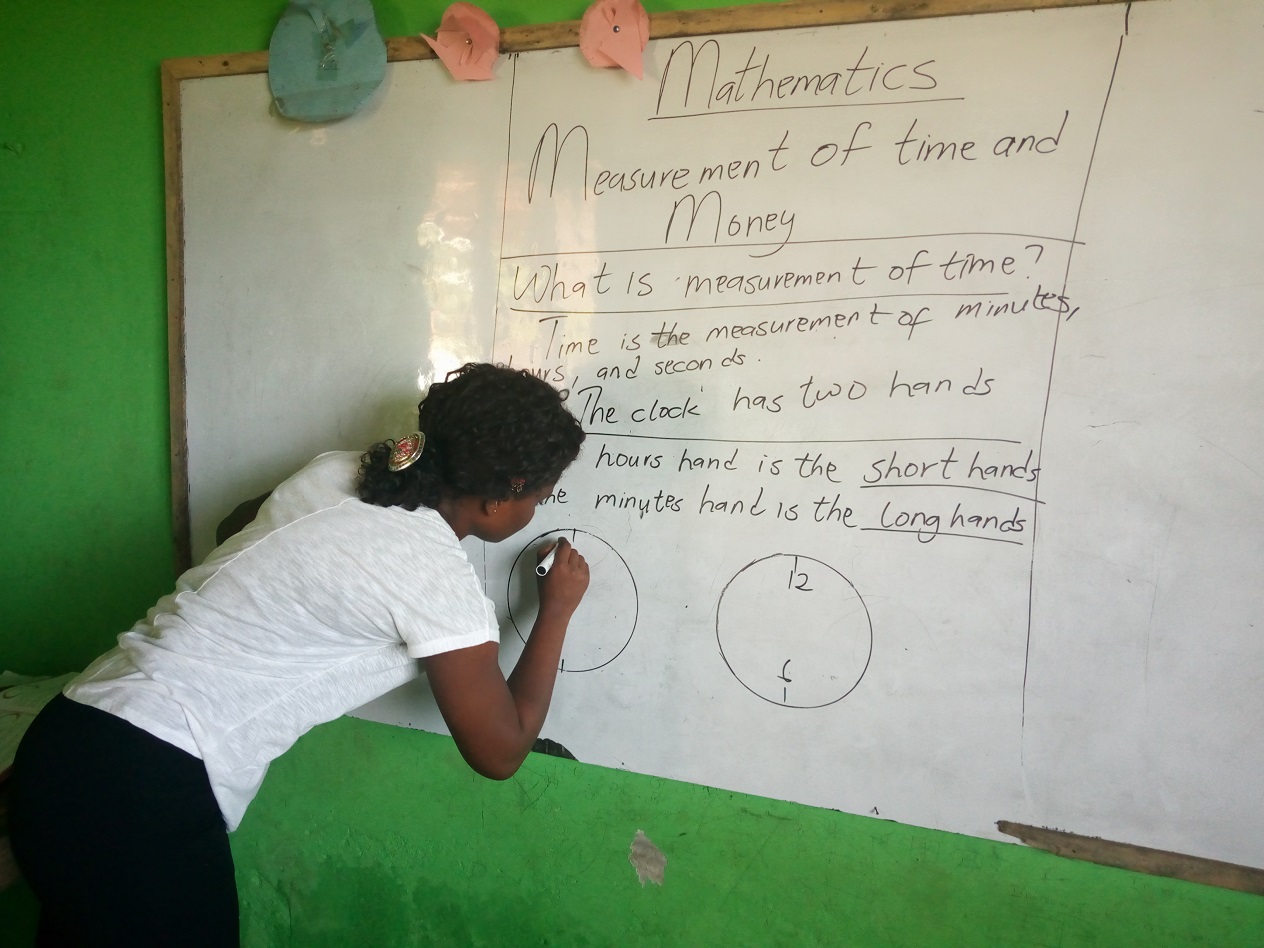 Mathematics
Measurement of time and
Money
What is measurement of time?
Time is the measurement of minutes,
hours, and seconds.
The clock has two hands
hours hand is the short hands
the minutes hand is the long hands
12
6